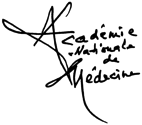 Académie
Nationale
de
Médecine